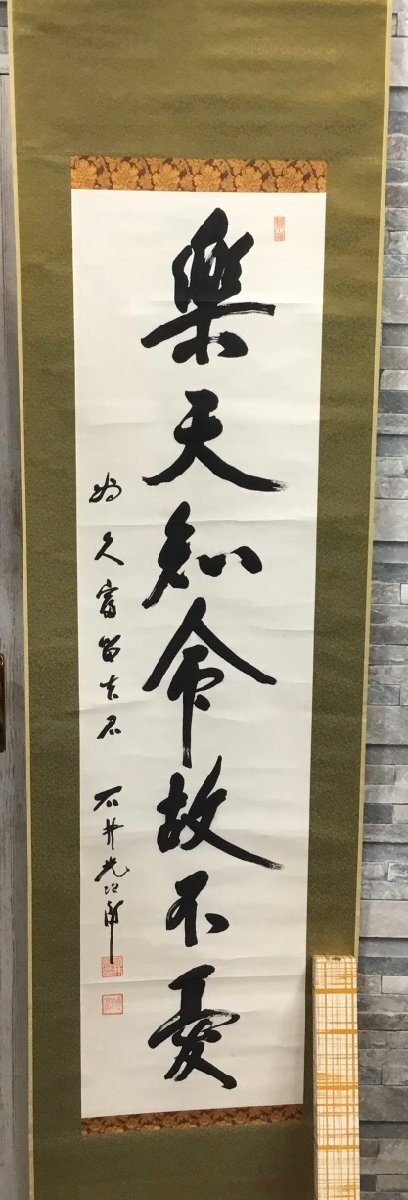 樂天知命故不憂
為久富留吉君 石井光次郎